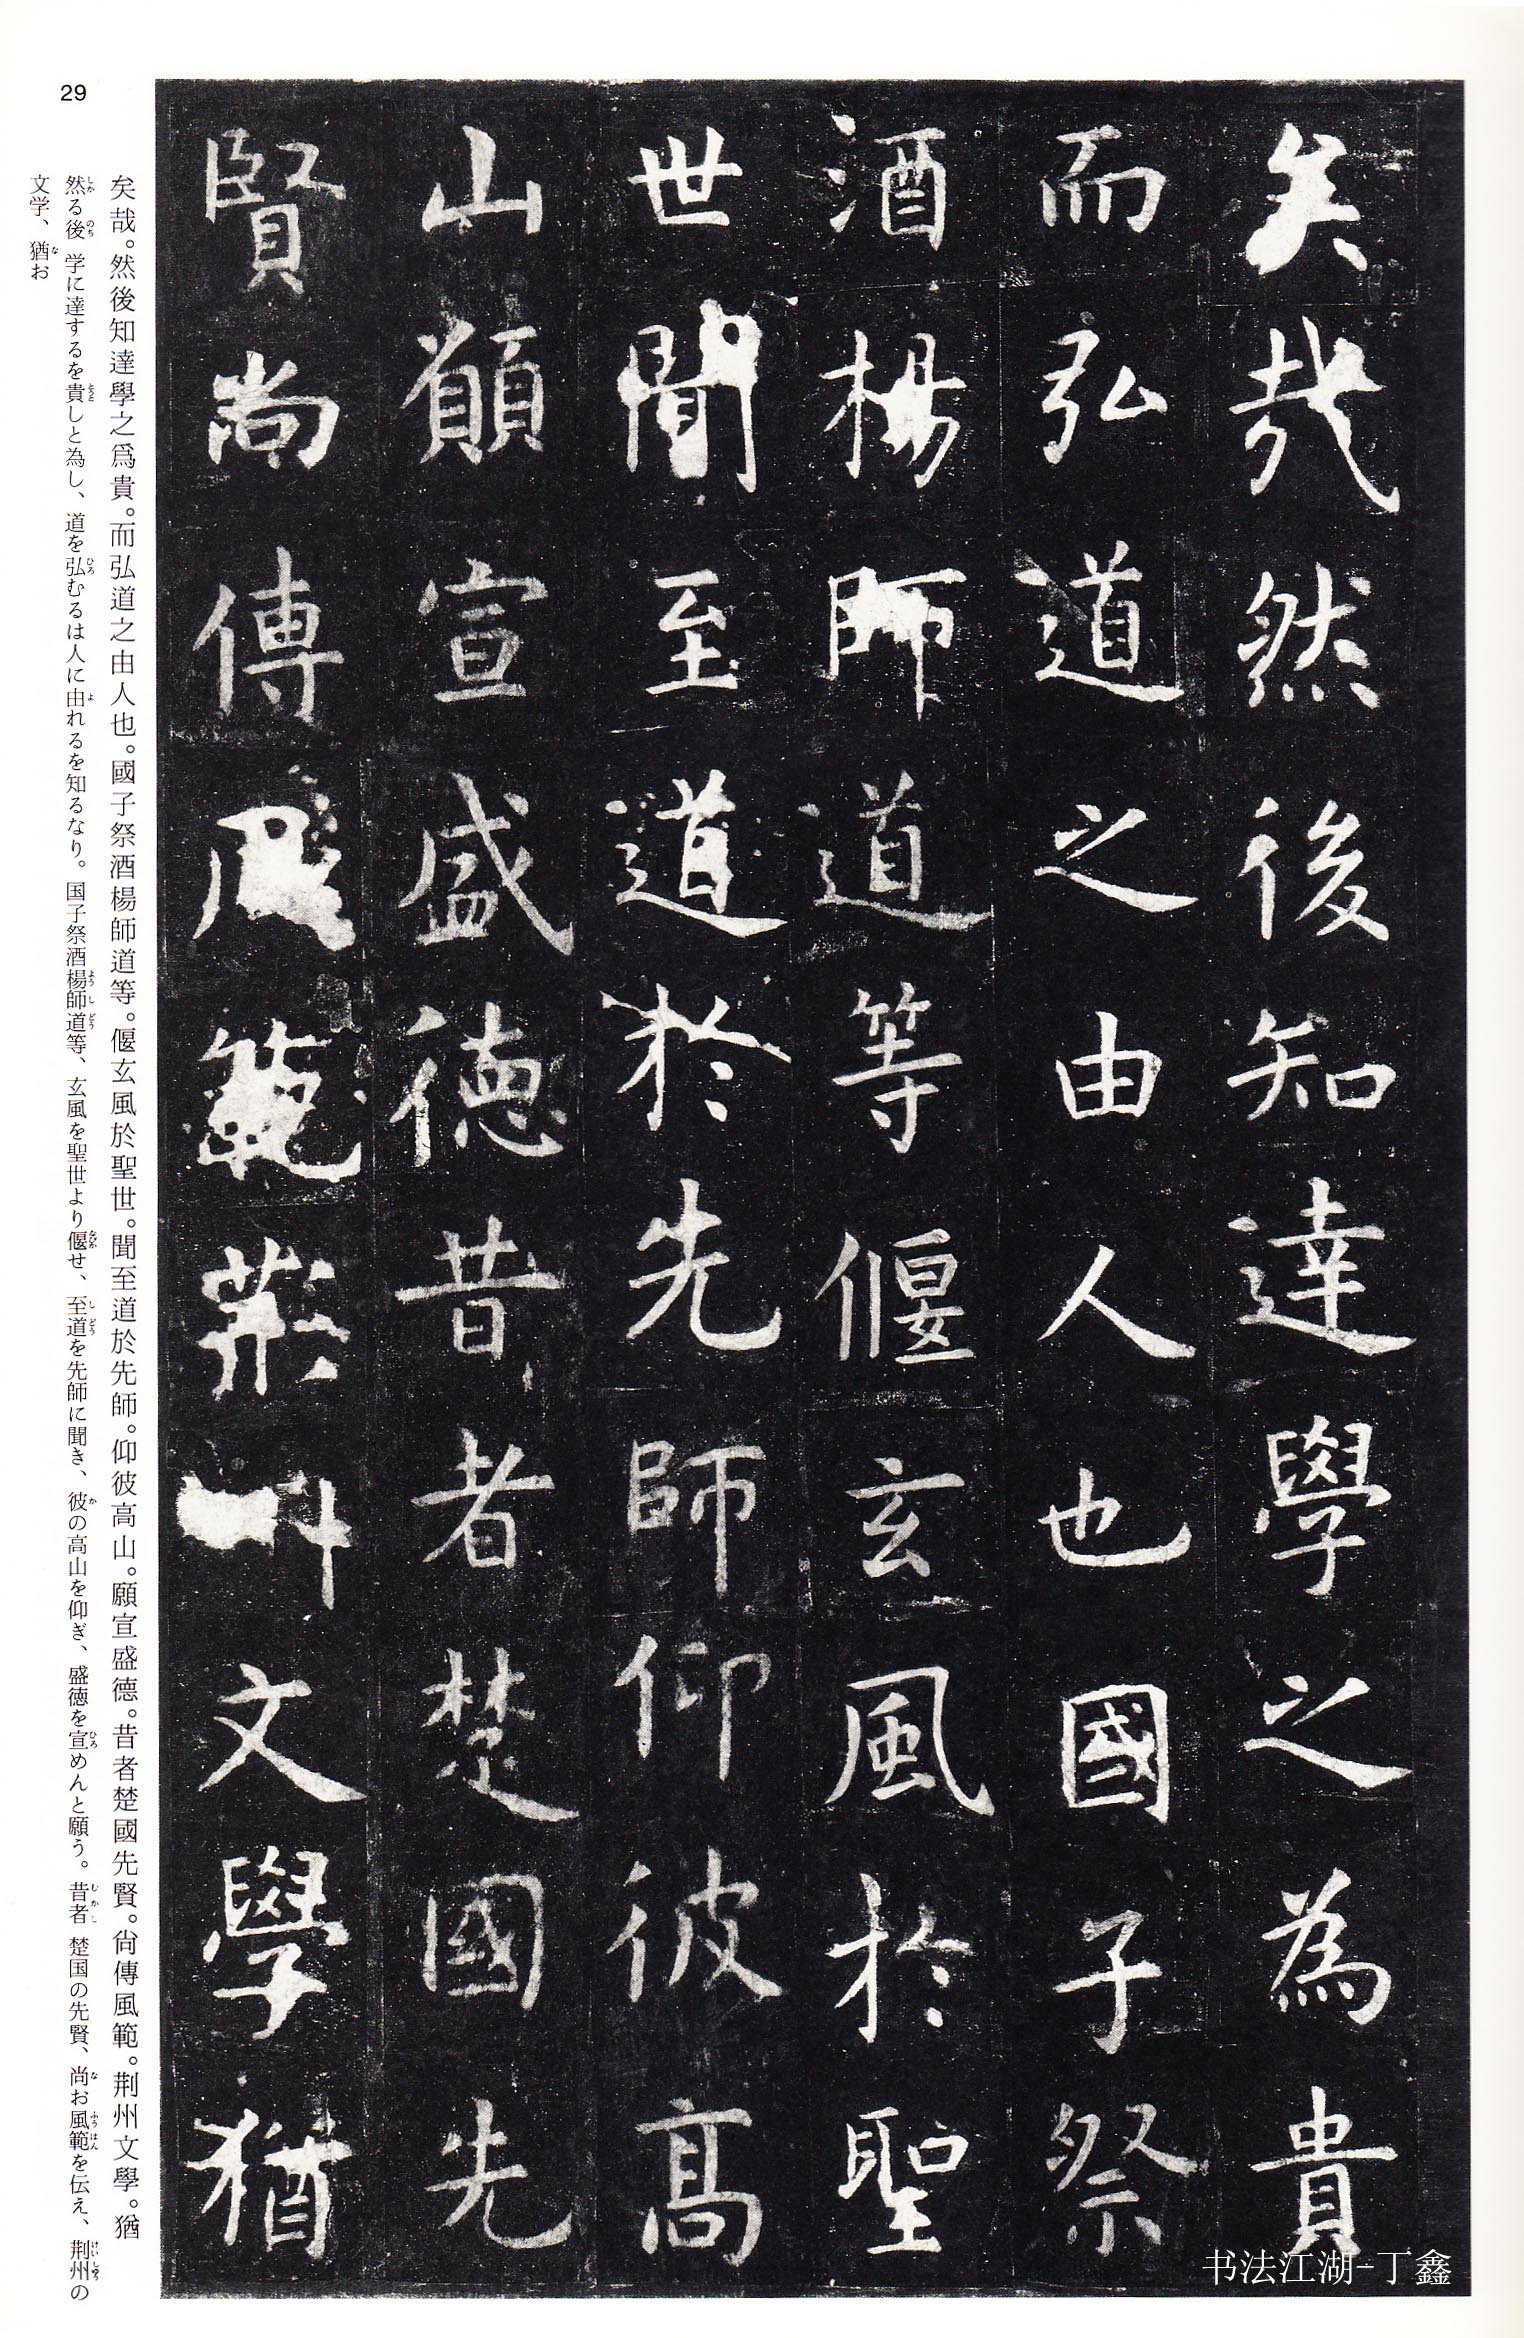 矣哉然後知達學之為貴
而弘道之由人也國子祭
酒楊師道等偃玄風於聖
世聞至道於先師仰彼高
山願宣盛德昔者楚國先
賢尚傳風範荊州文學猶
矣哉。然後知達學之爲貴。而弘道之由人也。國子祭酒楊師道等。偃玄風於聖世。聞至道於先師。仰彼高山。願宣盛德。昔者楚國先賢。尙傳風範。荆州文學。猶
然る後 学に達するを貴しと為し、道を弘むるは人に由れるを知るなり。国子祭酒楊師道等、玄風を聖世より偃せ、至道を先師に聞き、彼の高山を仰ぎ、盛徳を宣めんと願う。昔者 楚国の先賢、尚お風範を伝え、荆州の
文学、猶お
29
书法江湖-丁鑫